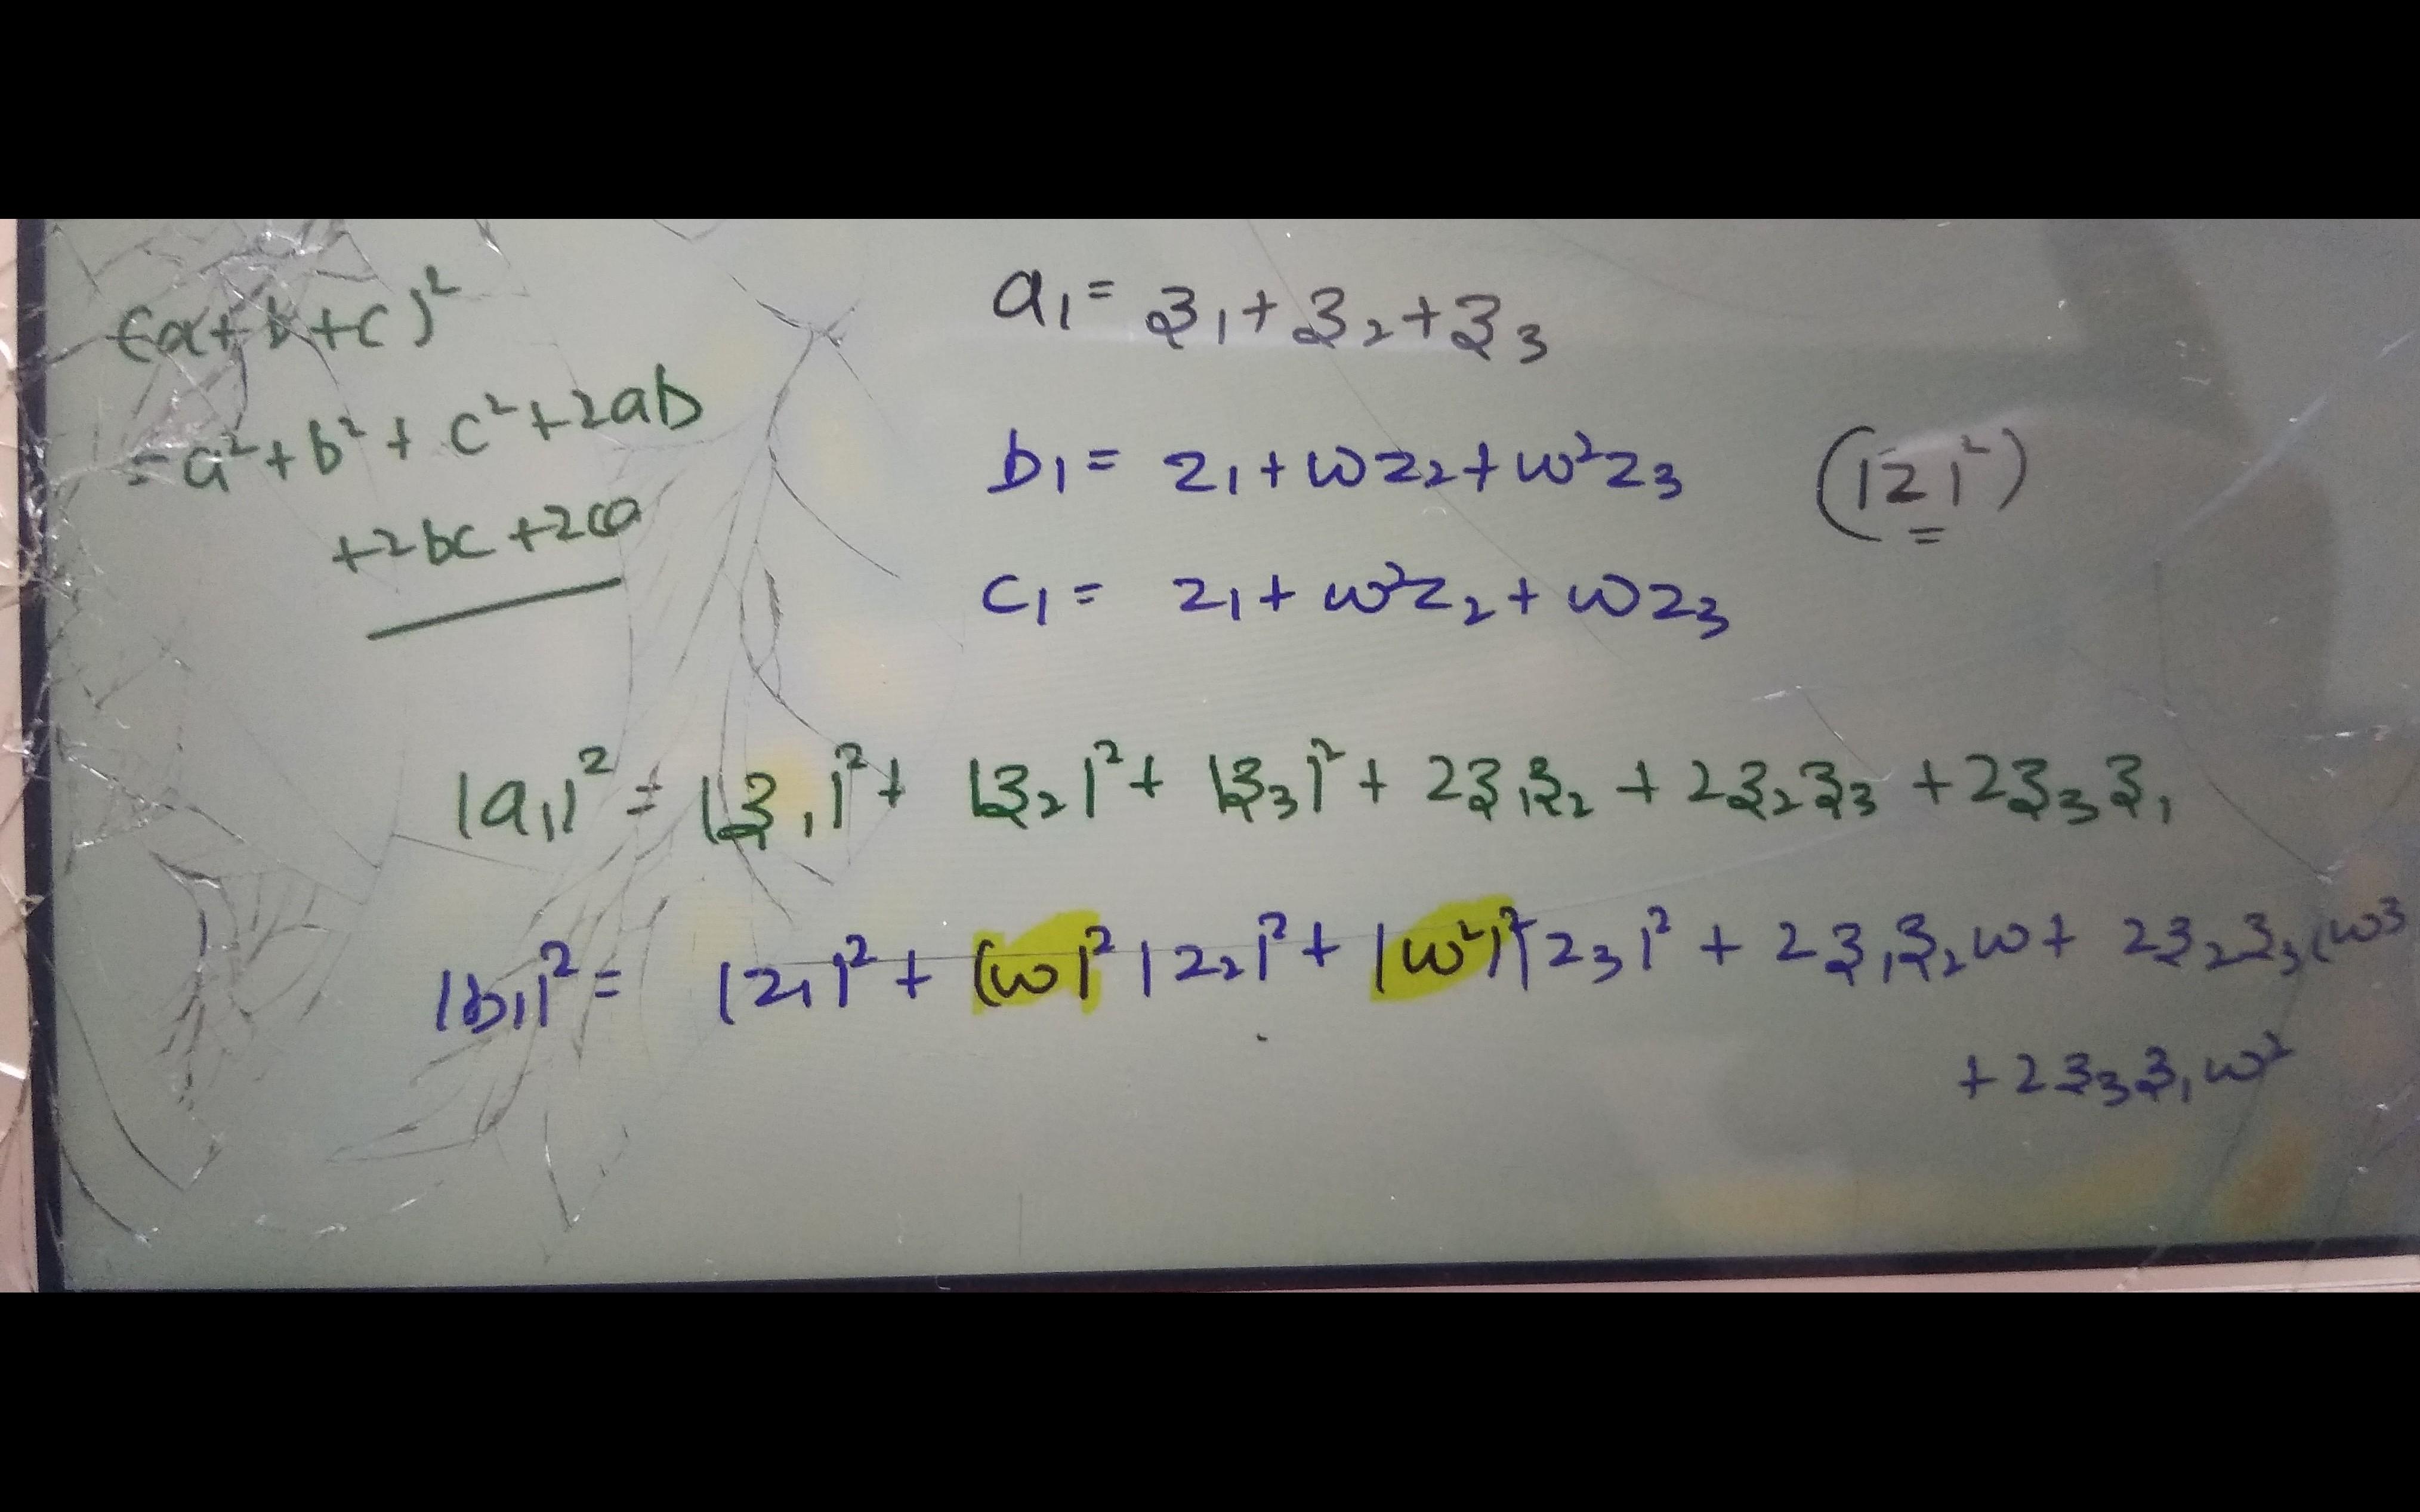 (a+b+c)²
= a²+b²+c²+2ab
+2bc+2ca
a₁= z₁+z₂+z₃
b₁= z₁+ωz₂+ω²z₃
(|z|²)
c₁= z₁+ω²z₂+ωz₃
|a₁|² = |z₁|²+ |z₂|²+ |z₃|²+ 2z₁z₂ + 2z₂z₃ +2z₃z₁
|b₁|²= |z₁|²+ |ω|²|z₂|²+ |ω²|²|z₃|² + 2z₁z₂ω+ 2z₂z₃ω³
+2z₃z₁ω²